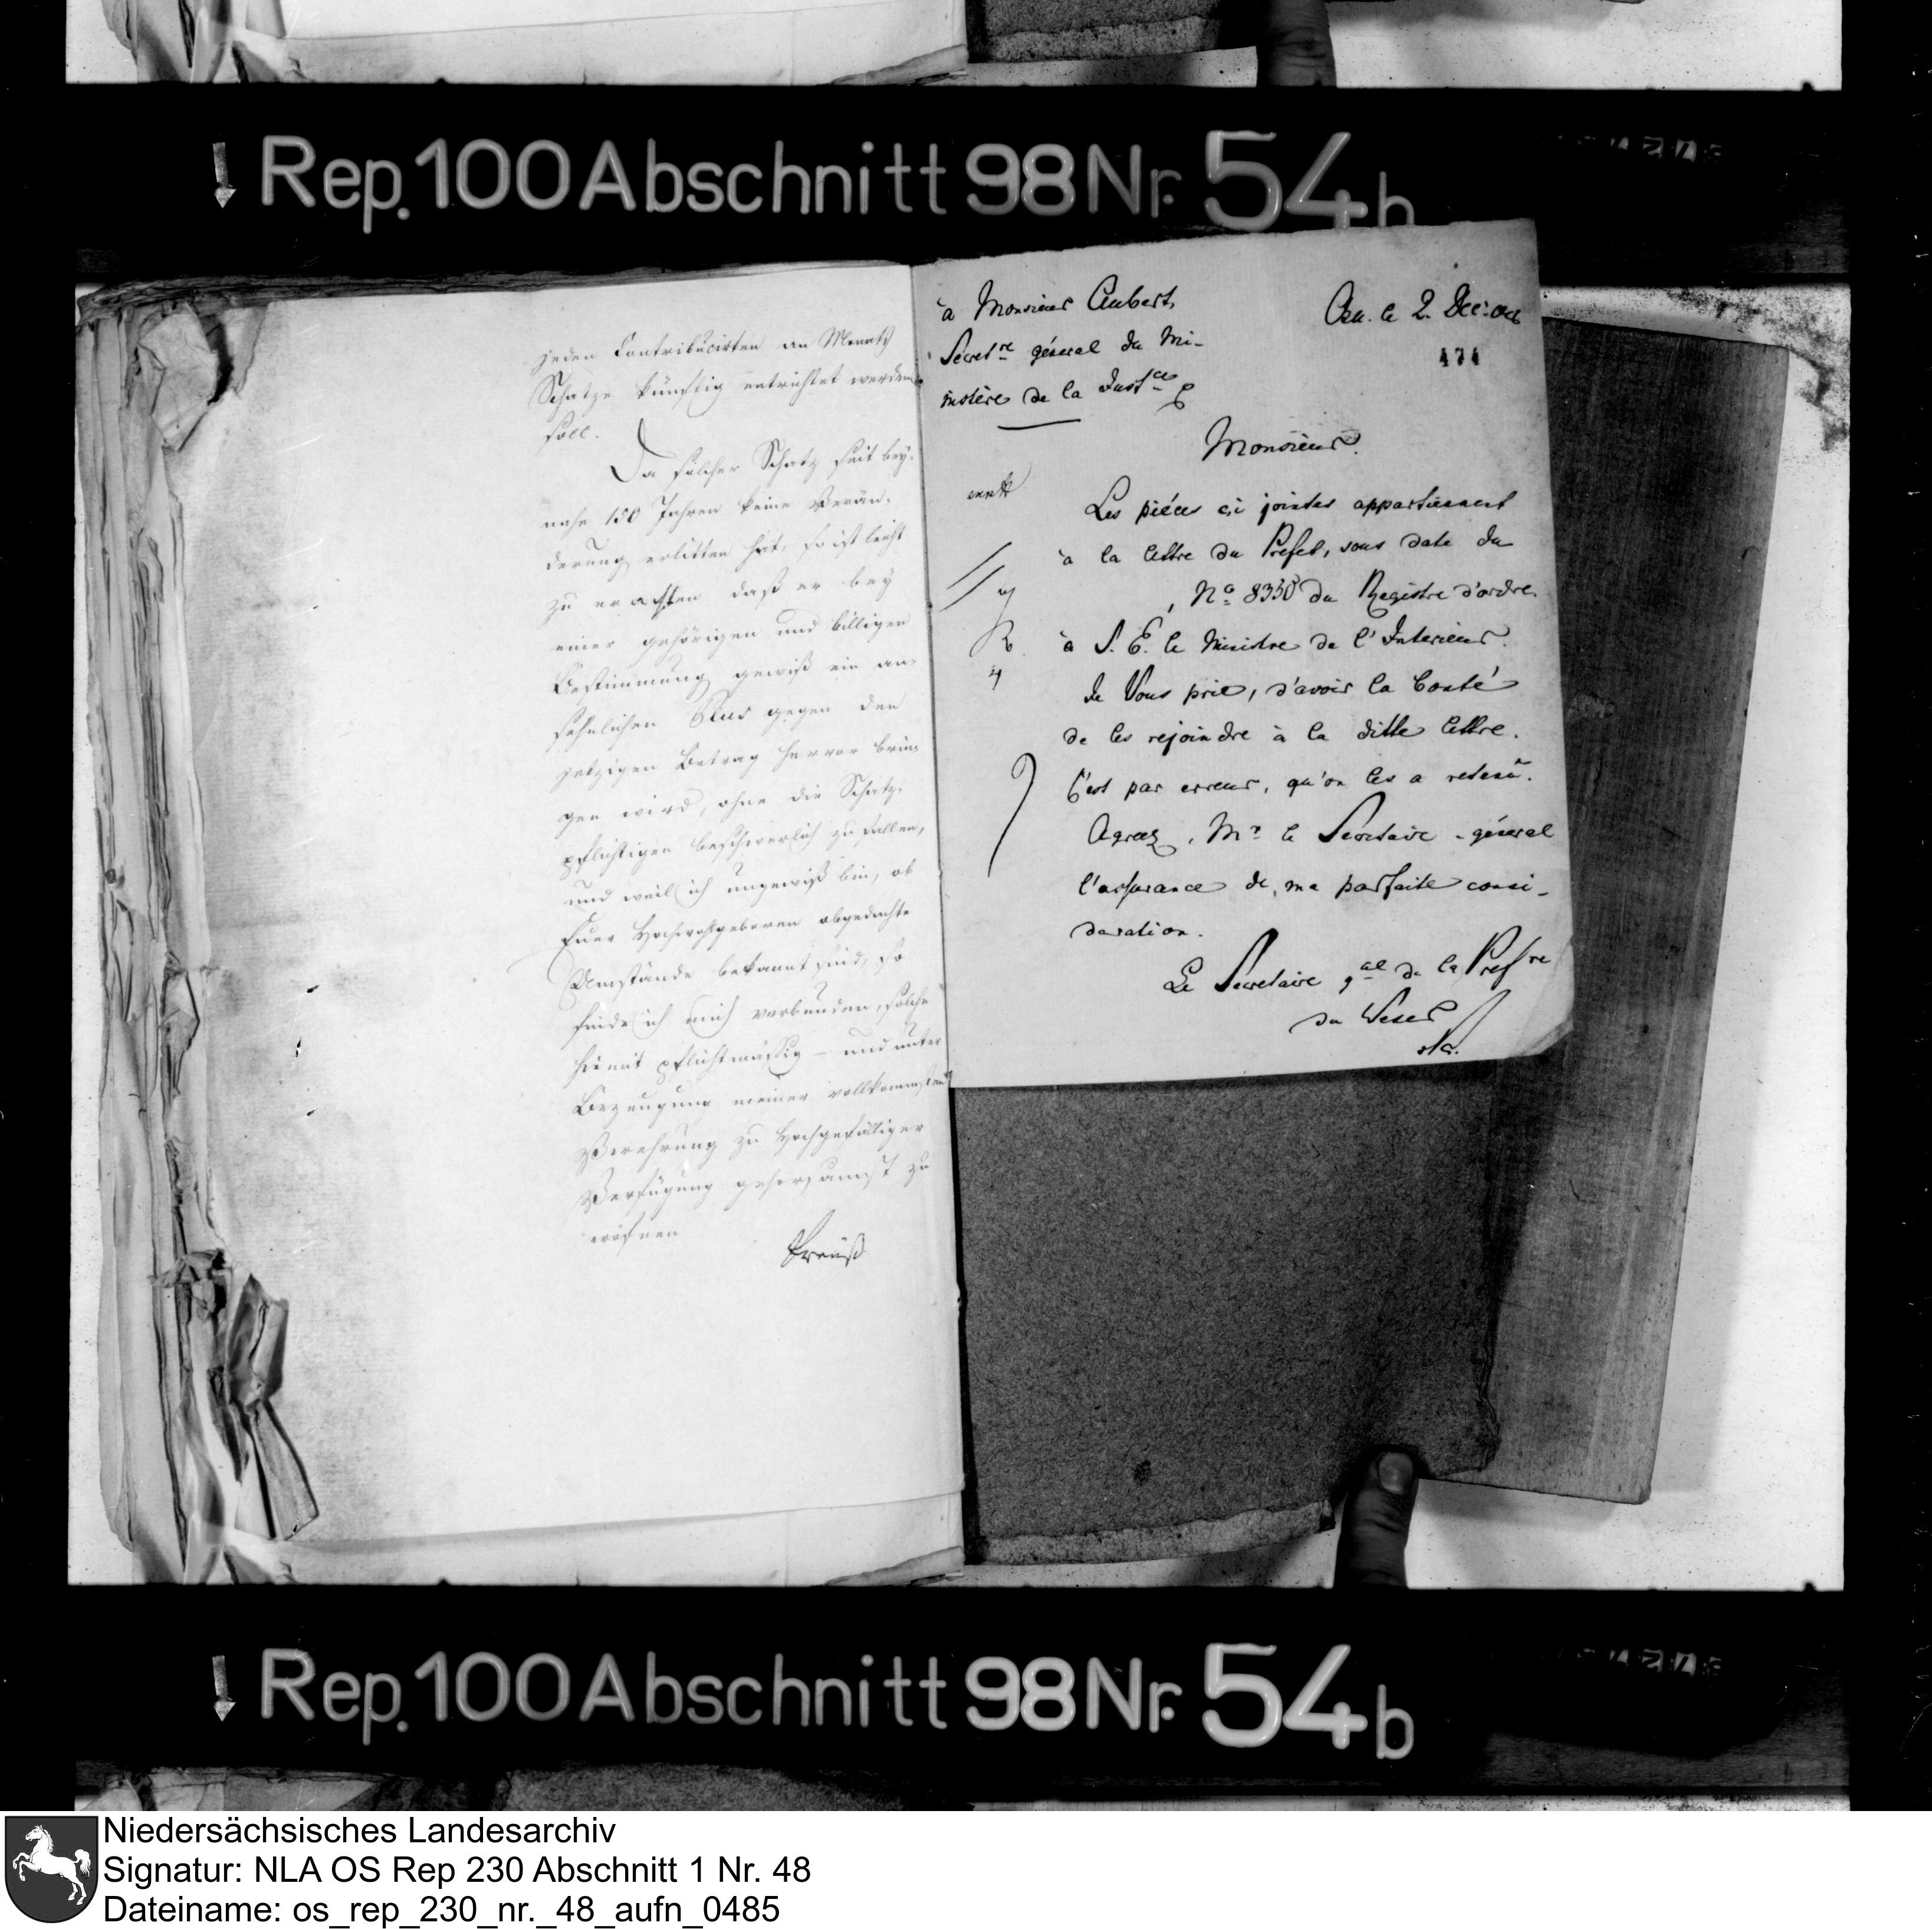 Rep. 100 Abschnitt 98 Nr. 54b
jeden Contribuirten an Monats
Schatze künftig entrichtet werden
soll.
Da solcher Schatz seit bey-
nahe 150 Jahren keine Verän-
derung erlitten hat, so ist leicht
zu erachten daß er bey
einer gehörigen und billigen
Bestimmung gewiß ein an-
sehnlichen Plus gegen den
jetzigen Betrag hervor brin-
gen wird, ohne die Schatz-
pflichtigen beschwerlich zu fallen,
und weil ich ungewiß bin, ob
Euer Hochwohlgeboren obgedachte
Umstände bekannt sind, so
finde ich mich verbunden, solche
hiemit pflichtmäßig – und unter
Bezeugung meiner vollkommensten
Verehrung zu Hochgefälliger
Verfügung gehorsamst zu
eröfnen
Preuß
à Monsieur Aubert,
Secret.re géneral du Mi-
nistère de la Justce
Osn. le 2. Dec: 08
474
Monsieur.
Les piéces ci jointes appartiennent
à la lettre du Prefet, sous date du
, No. 8350 du Registre d'ordre
à S. E. le Ministre de l'Interieur.
Je Vous prie, d'avoir la bonté
de les rejoindre à la ditte lettre.
C'est par erreur, qu'on les a retenu.
Agreez, Mr. le Secretaire-géneral
l'assurance de ma parfaite consi-
deration.
Le Secretaire gal de la Prefre
du Weser
Rep. 100 Abschnitt 98 Nr. 54b
Niedersächsisches Landesarchiv
Signatur: NLA OS Rep 230 Abschnitt 1 Nr. 48
Dateiname: os_rep_230_nr._48_aufn_0485